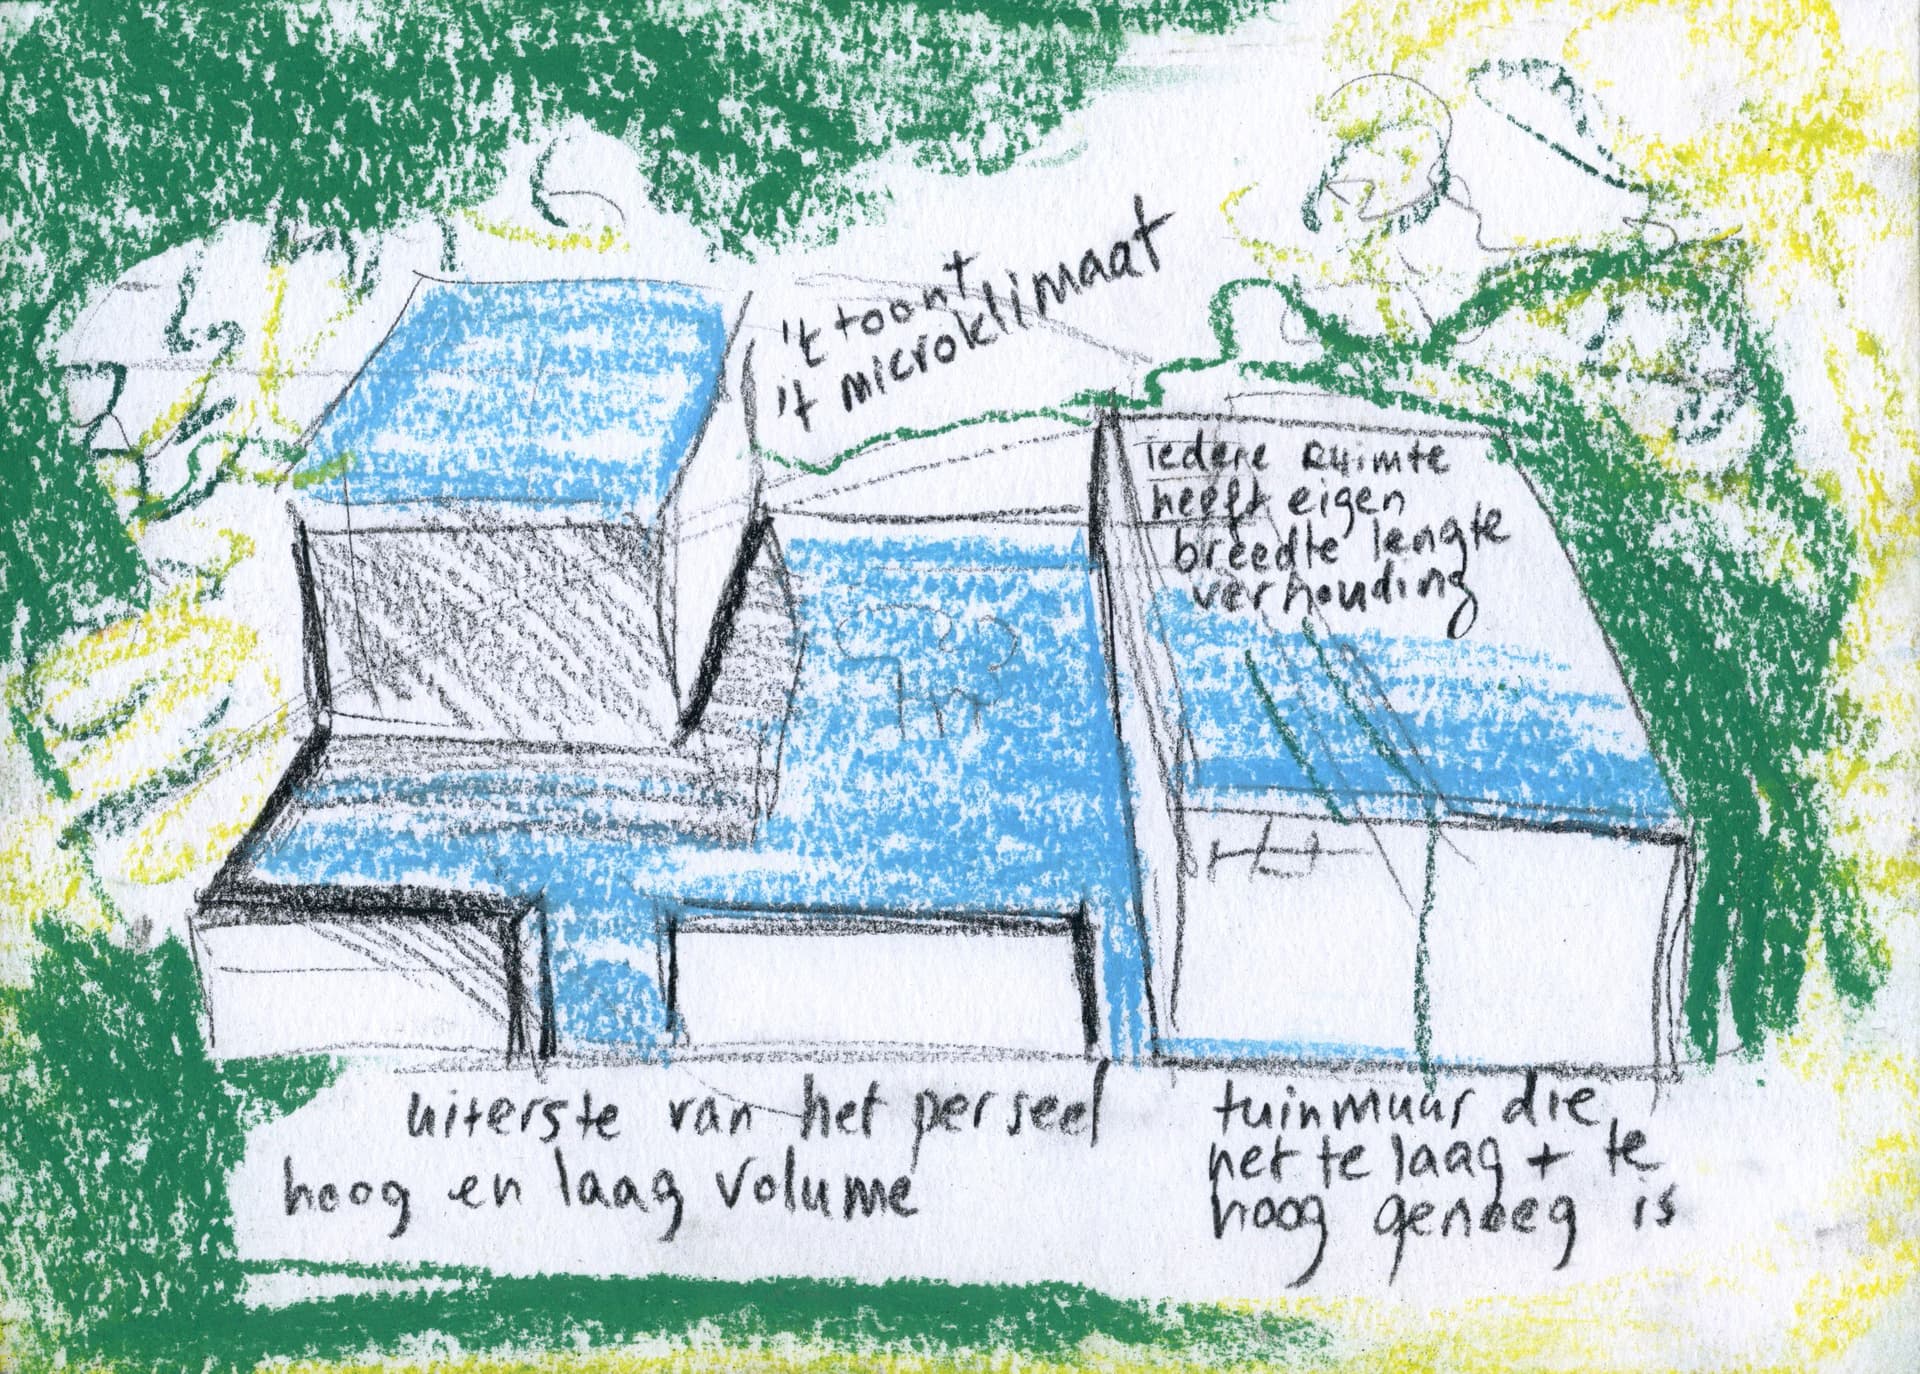 't toont
't microklimaat
iedere ruimte
heeft eigen
breedte lengte
verhouding
uiterste van het perseel
hoog en laag volume
tuinmuur die
net te laag + te
hoog genoeg is